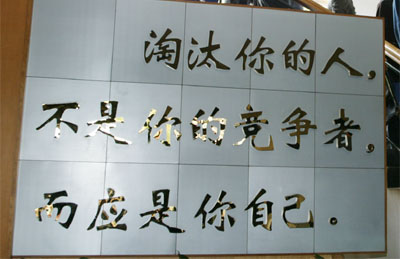 淘汰你的人，
不是你的竞争者，
而应是你自己。